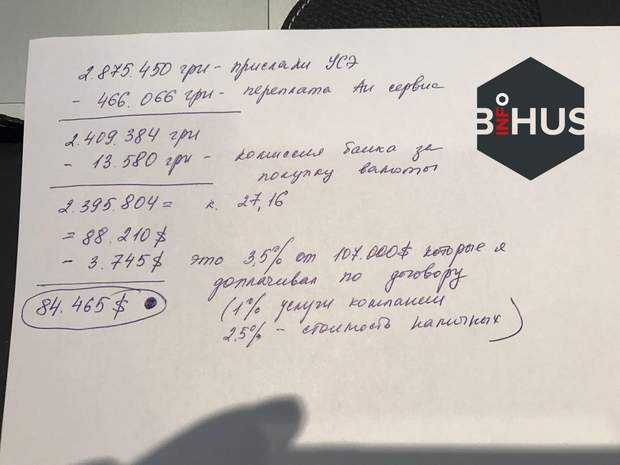 2.875.450 грн - прислали УСЭ
- 466.066 грн - переплата Ай сервис
2.409.384 грн
- 13.580 грн - комиссия банка за
покупку валюты
2.395.804 = к. 27,16
= 88.210 $
- 3.745 $ это 3,5% от 107.000$ которые я
доплачивал по договору
84.465 $
(1% услуги компании
2,5% - стоимость наличных)
BIHUS
INFO